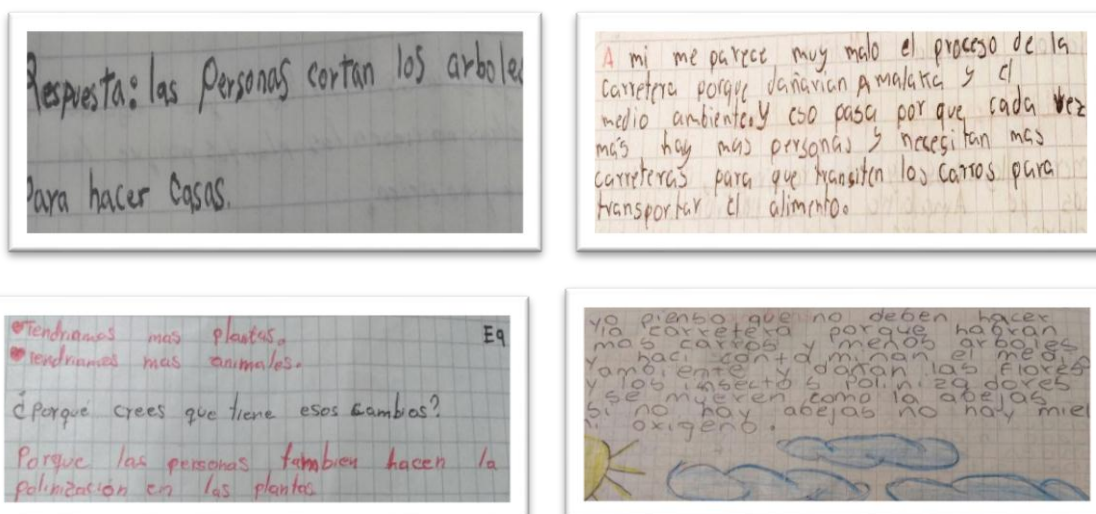 Respuesta: las Personas cortan los arboles
Para hacer Casas.
A mi me parece muy malo el proceso de la
carretera porque dañarian A malaka y el
medio ambiente. y eso pasa por que cada vez
más hay mas personas y necesitan mas
carreteras para que transiten los carros para
transportar el alimento.
Tendriamos mas plantas.
E9
Tendriamos mas animales.
¿Porqué crees que tiene esos cambios?
Porque las personas tambien hacen la
polinización en las plantas
yo pienso que no deben hacer
la carretera porque habran
mas carros y menos arboles
y haci contaminan el medi
ambiente y dañan las flores
y los insectos polinizadores
se mueren como la abejas
si no hay abejas no hay miel
oxigeno.